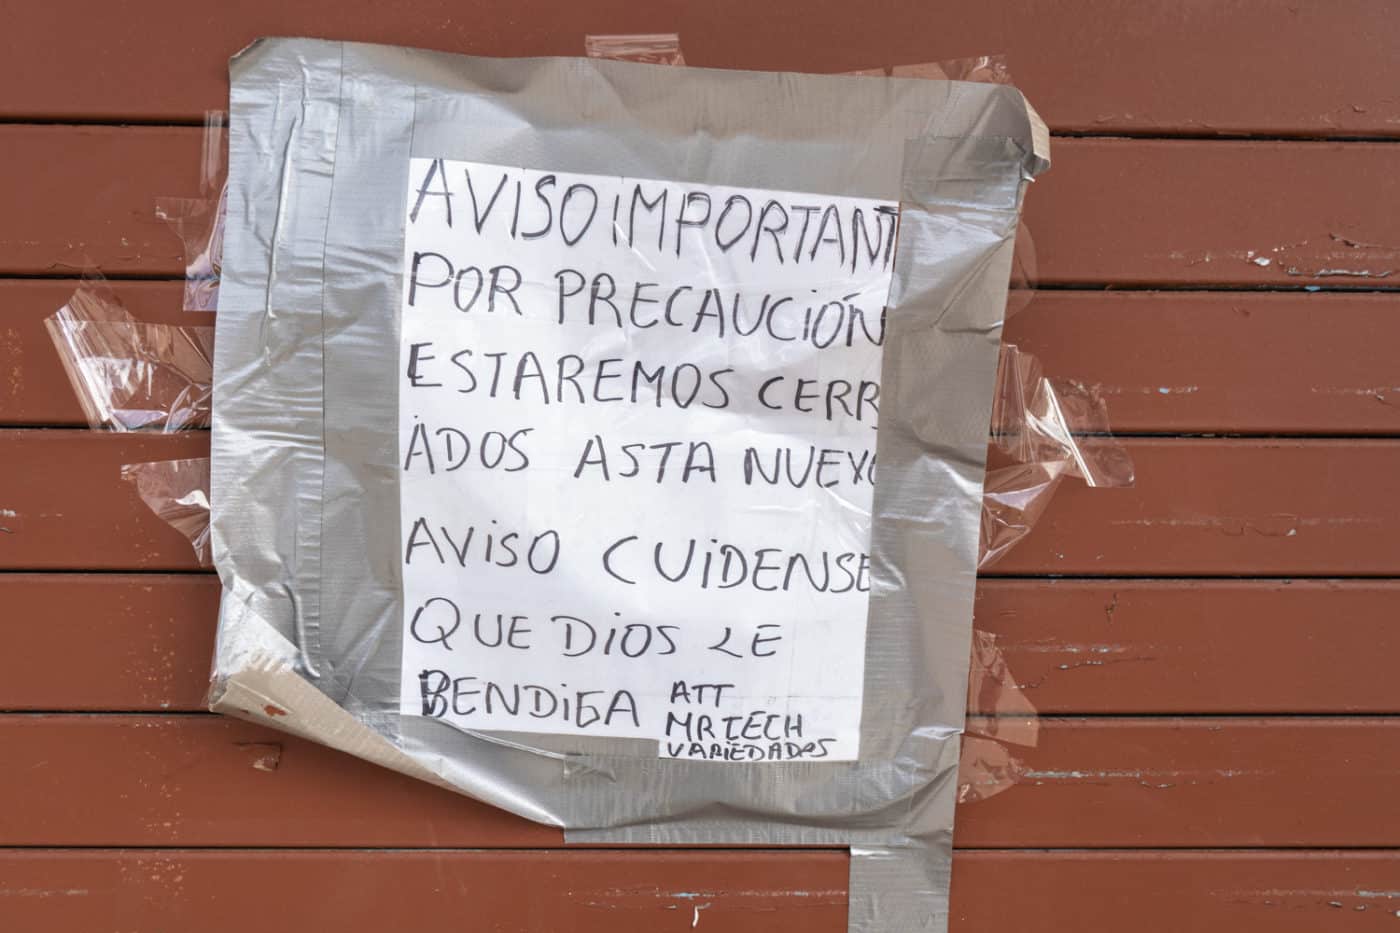 AVISO IMPORTANT
POR PRECAUCIÓN
ESTAREMOS CERR
ADOS ASTA NUEVO
AVISO CUIDENSE
QUE DIOS LE
BENDIGA ATT
MR TECH
VARIEDADES